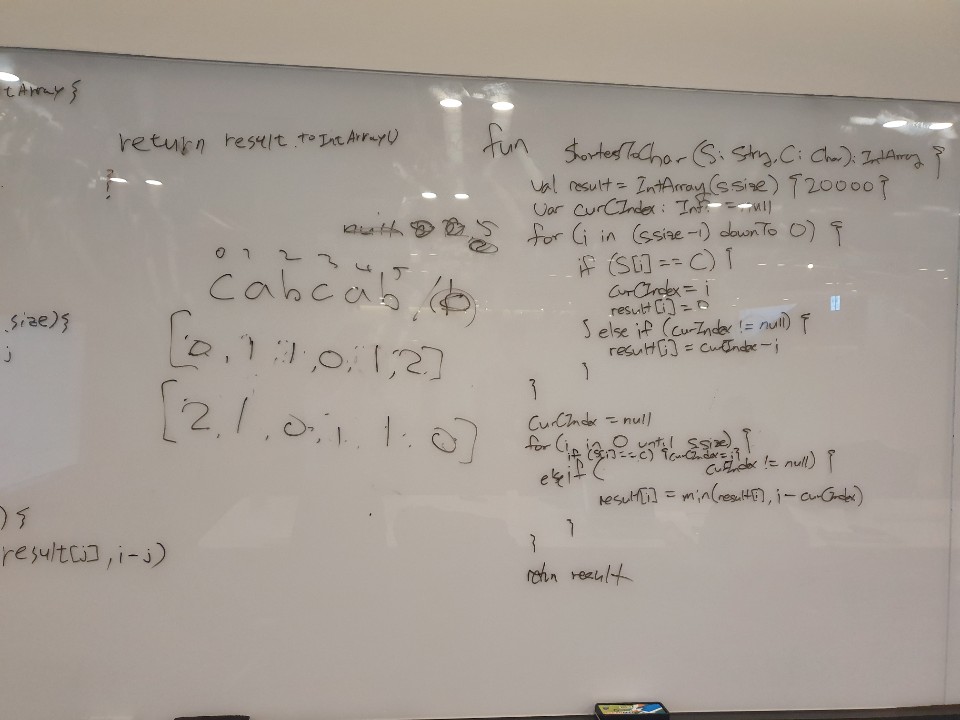 tArray {
return result.toIntArray()
}
0 1 2 3 4 5
cabcab, b
[0, 1, 1, 0, 1, 2]
[2, 1, 0, 1, 1, 0]
.size) {
) {
result[j], i-j)
fun shortestToChar(S: String, C: Char): IntArray {
val result = IntArray(s.size) { 20000 }
var curCIndex: Int? = null
for (i in (s.size-1) downTo 0) {
if (S[i] == C) {
curCIndex = i
result[i] = 0
} else if (curIndex != null) {
result[i] = curIndex - i
}
}
curCIndex = null
for (i in 0 until s.size) {
if (s[i] == c) {curCIndex = i}
else if (curIndex != null) {
result[i] = min(result[i], i - curCIndex)
}
}
return result